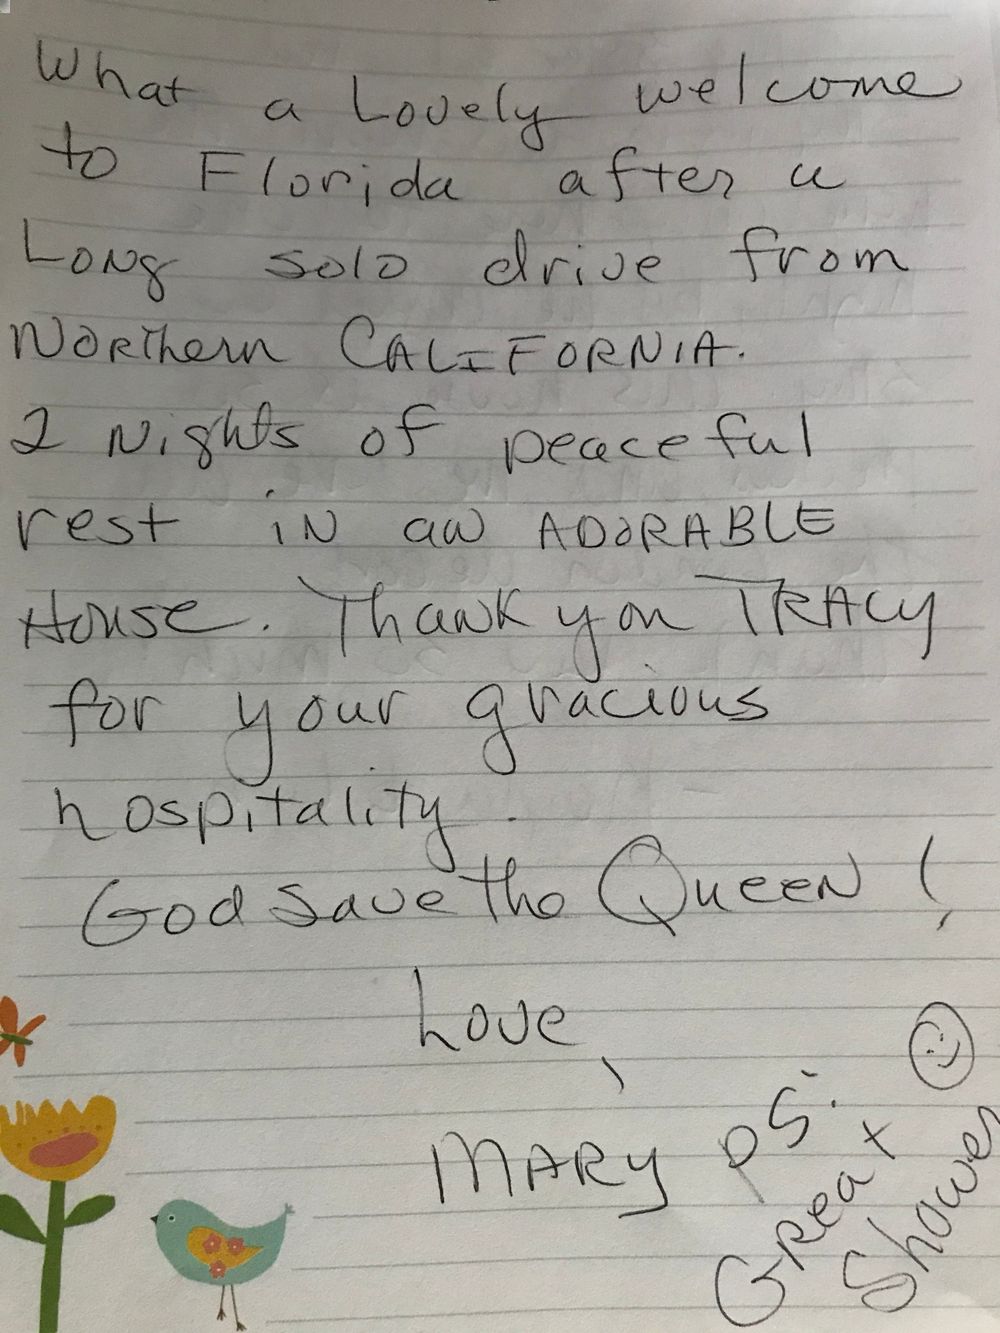 What a Lovely welcome
to Florida after a
Long solo drive from
Northern CALIFORNIA.
2 Nights of peaceful
rest iN aN ADORABLE
House. Thank you TRACY
for your gracious
hospitality.
God Save the QueeN!
Love,
MARY
PS.
Great
Shower